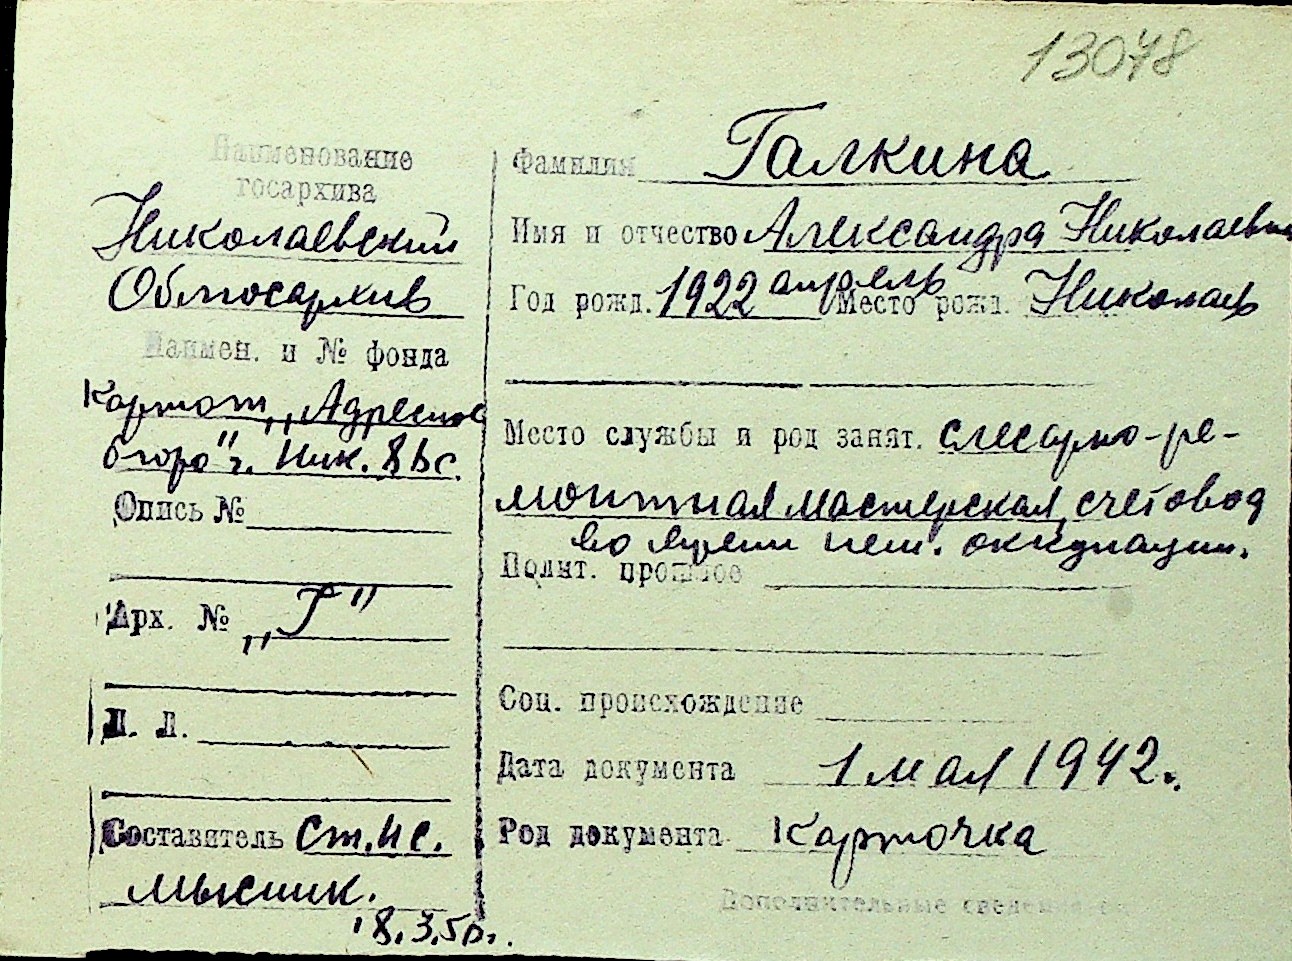 13078
Наименование
госархива
Николаевский
Облгосархив
Наимен. и № фонда
Картот. „Адресное
бюро" г. Ник.
Опись №
Арх. № „Г"
Л. Л.
Составитель Ст. н с.
Мысник.
18.3.50г.
Фамилия Галкина
Имя и отчество Александра Николаевна
Год рожд. 1922 апрель Место рожд. Николаев
Место службы и род занят. слесарно-ре-
монтная мастерская, счетовод
во время нем. оккупации.
Полит. прошлое
Соц. происхождение
Дата документа 1 мая 1942.
Род документа Карточка
Дополнительные сведения